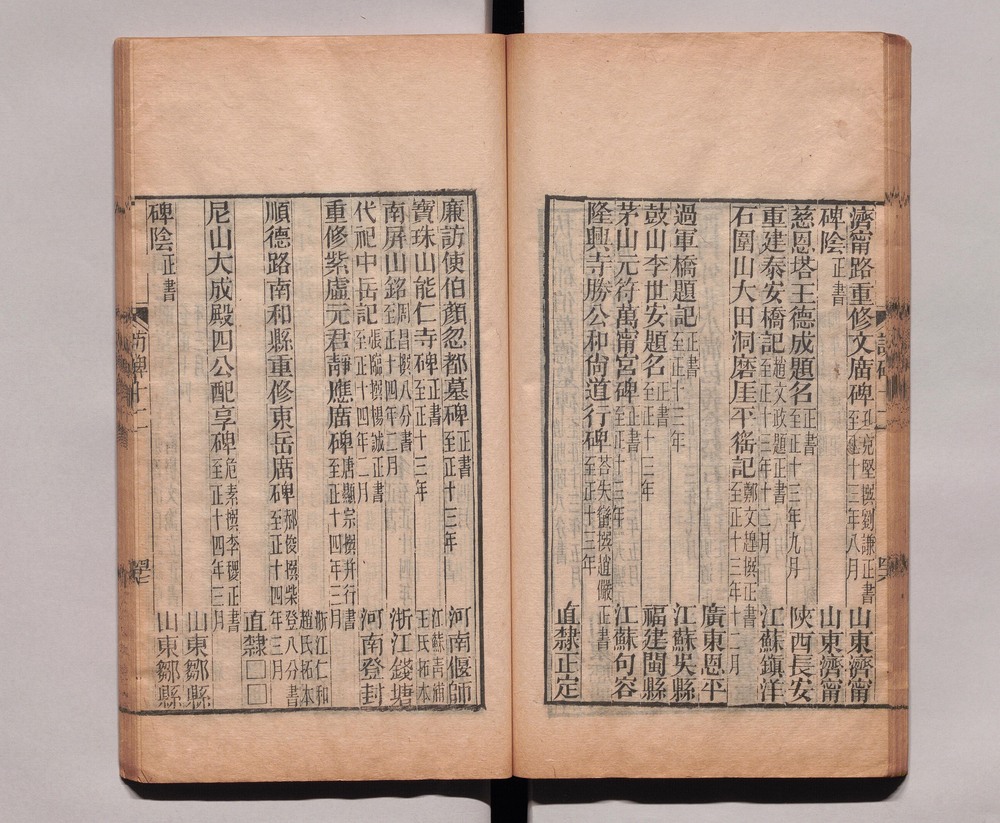 濟甯路重修文廣碑 孔克堅撰劉謙正書 至正十三年八月 山東濟甯
碑陰 正書 山東濟甯
慈恩塔王德成題名 正書 至正十三年九月 陝西長安
重建泰安橋記 趙文政題正書 至正十三年十三月 江蘇鎮洋
石圍山大田洞磨厓平猺記 鄭文遹撰正書 至正十三年十二月 廣東恩平
過軍橋題記 正書 至正十三年 江蘇吳縣
鼓山李世安題名 正書 至正十三年 福建閩縣
茅山元符萬甯宮碑 正書 至正十三年 江蘇句容
隆興寺勝公和尙道行碑 荅失蠻撰趙儼正書 至正十三年 直隸正定
廉訪使伯顏忽都墓碑 正書 至正十三年 河南偃師
寶珠山能仁寺碑 正書 至正十三年 江蘇靑浦 王氏拓本
南屏山銘 周昌撰八分書 至正十四年二月 浙江錢塘
代祀中岳記 張臨撰楊誠正書 至正十四年二月 河南登封
重修紫虛元君靜應廣碑 唐顯宗撰并行書 至正十四年三月 浙江仁和 趙氏拓本
順德路南和縣重修東岳廣碑 郝俊撰柴登八分書 至正十四年三月 直隸□□
尼山大成殿四公配享碑 危素撰李稷正書 至正十四年三月 山東鄒縣
碑陰 正書 山東鄒縣
訪碑十二